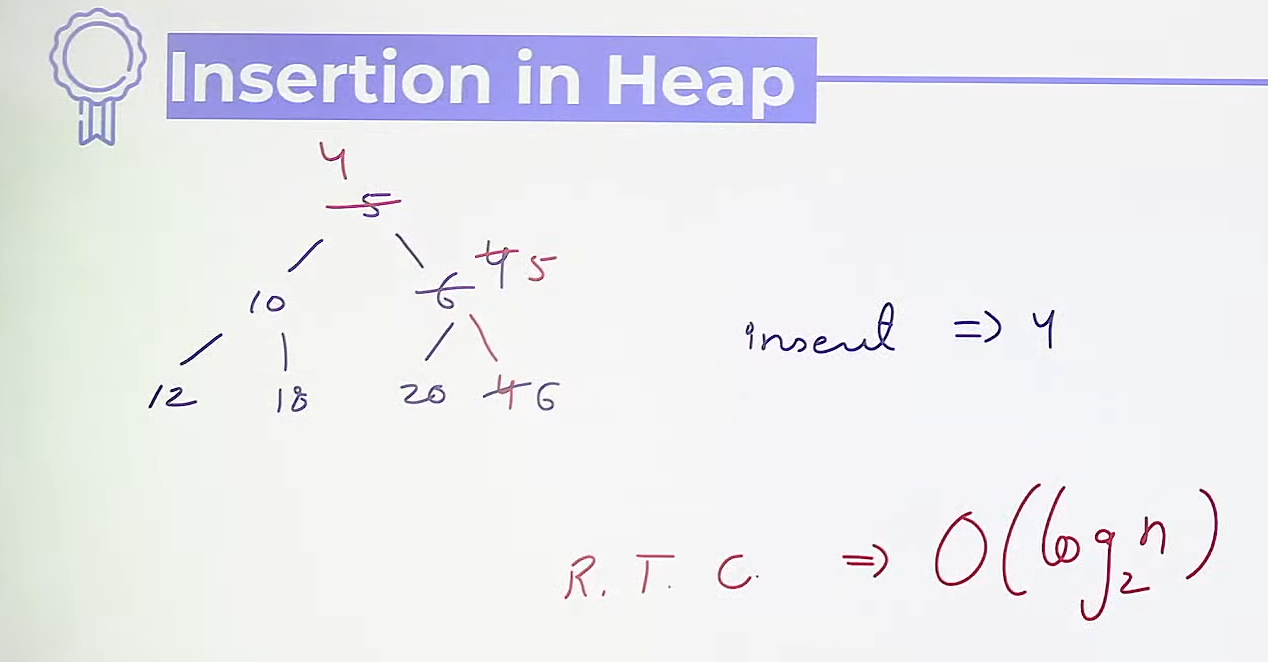 Insertion in Heap
4
5
10 6 4 5
12 18 20 4 6
insert => 4
R. T. C. => O(log₂n)